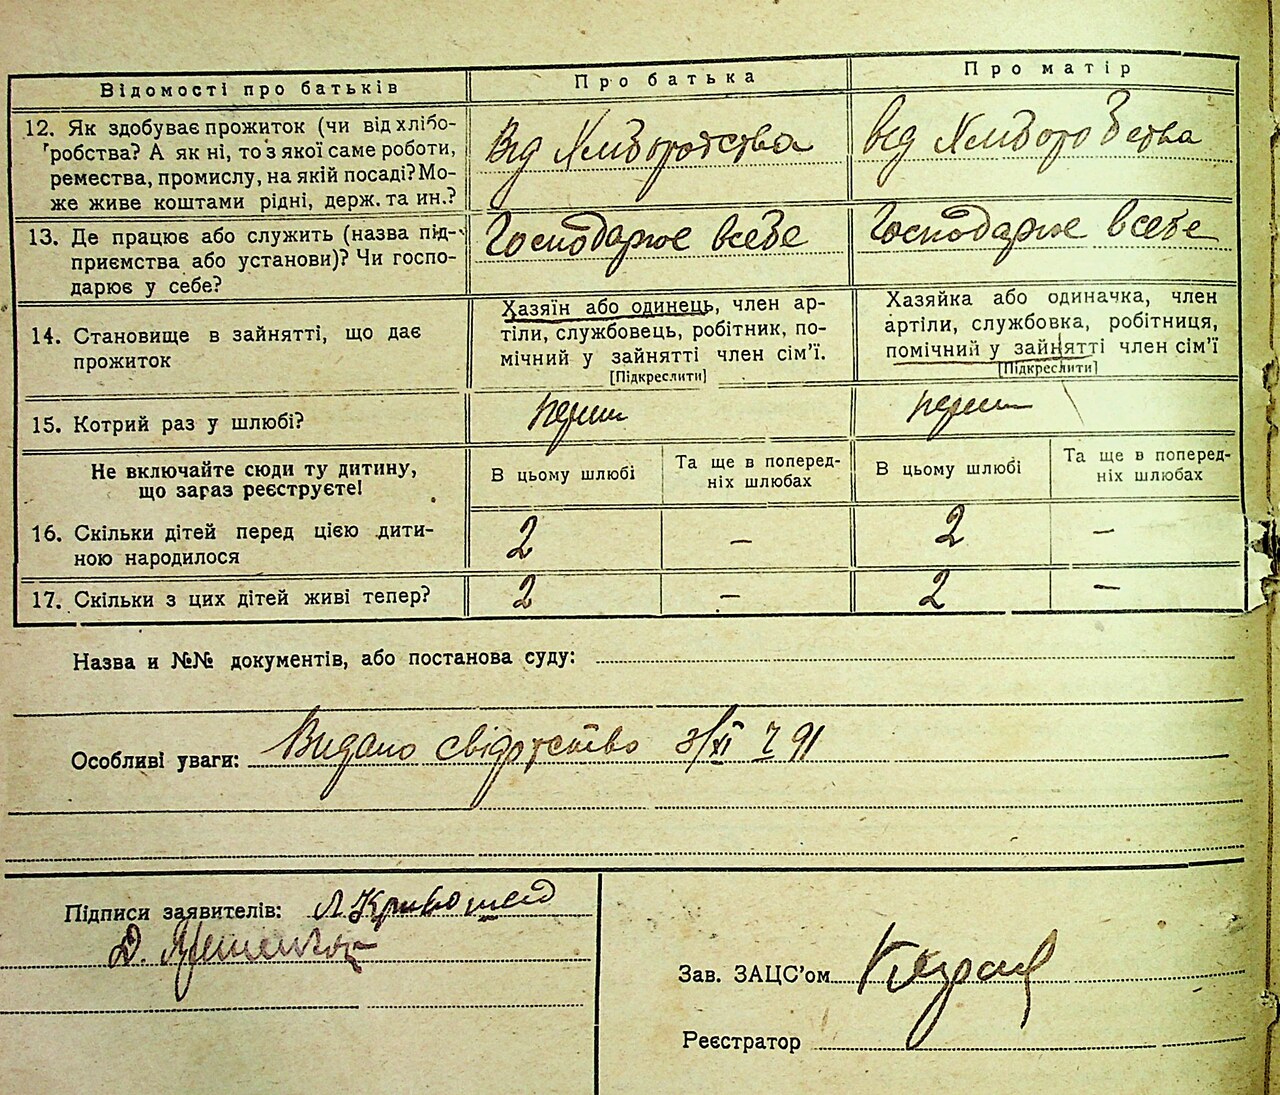 Відомості про батьків
Про батька
Про матір
12. Як здобуває прожиток (чи від хлібо-
робства? А як ні, то з якої саме роботи,
ремества, промислу, на якій посаді? Мо-
же живе коштами рідні, держ. та ин.?
Від Хліборобства
від Хліборобства
13. Де працює або служить (назва під-
приємства або установи)? Чи госпо-
дарює у себе?
Господарює в себе
Господарює в себе
14. Становище в зайнятті, що дає
прожиток
Хазяїн або одинець, член ар-
тілі, службовець, робітник, по-
мічний у зайнятті член сім’ї.
[Підкреслити]
Хазяйка або одиначка, член
артіли, службовка, робітниця,
помічний у зайнятті член сім’ї
[Підкреслити]
15. Котрий раз у шлюбі?
перши
перши
Не включайте сюди ту дитину,
що зараз реєструєте!
В цьому шлюбі
Та ще в поперед-
ніх шлюбах
В цьому шлюбі
Та ще в поперед-
ніх шлюбах
16. Скільки дітей перед цією дити-
ною народилося
2
–
2
–
17. Скільки з цих дітей живі тепер?
2
–
2
–
Назва и №№ документів, або постанова суду:
Особливі уваги: Видано свідотство 3/XI 91
Підписи заявителів: Л Кривошей
Д.
Зав. ЗАЦС’ом
Реєстратор